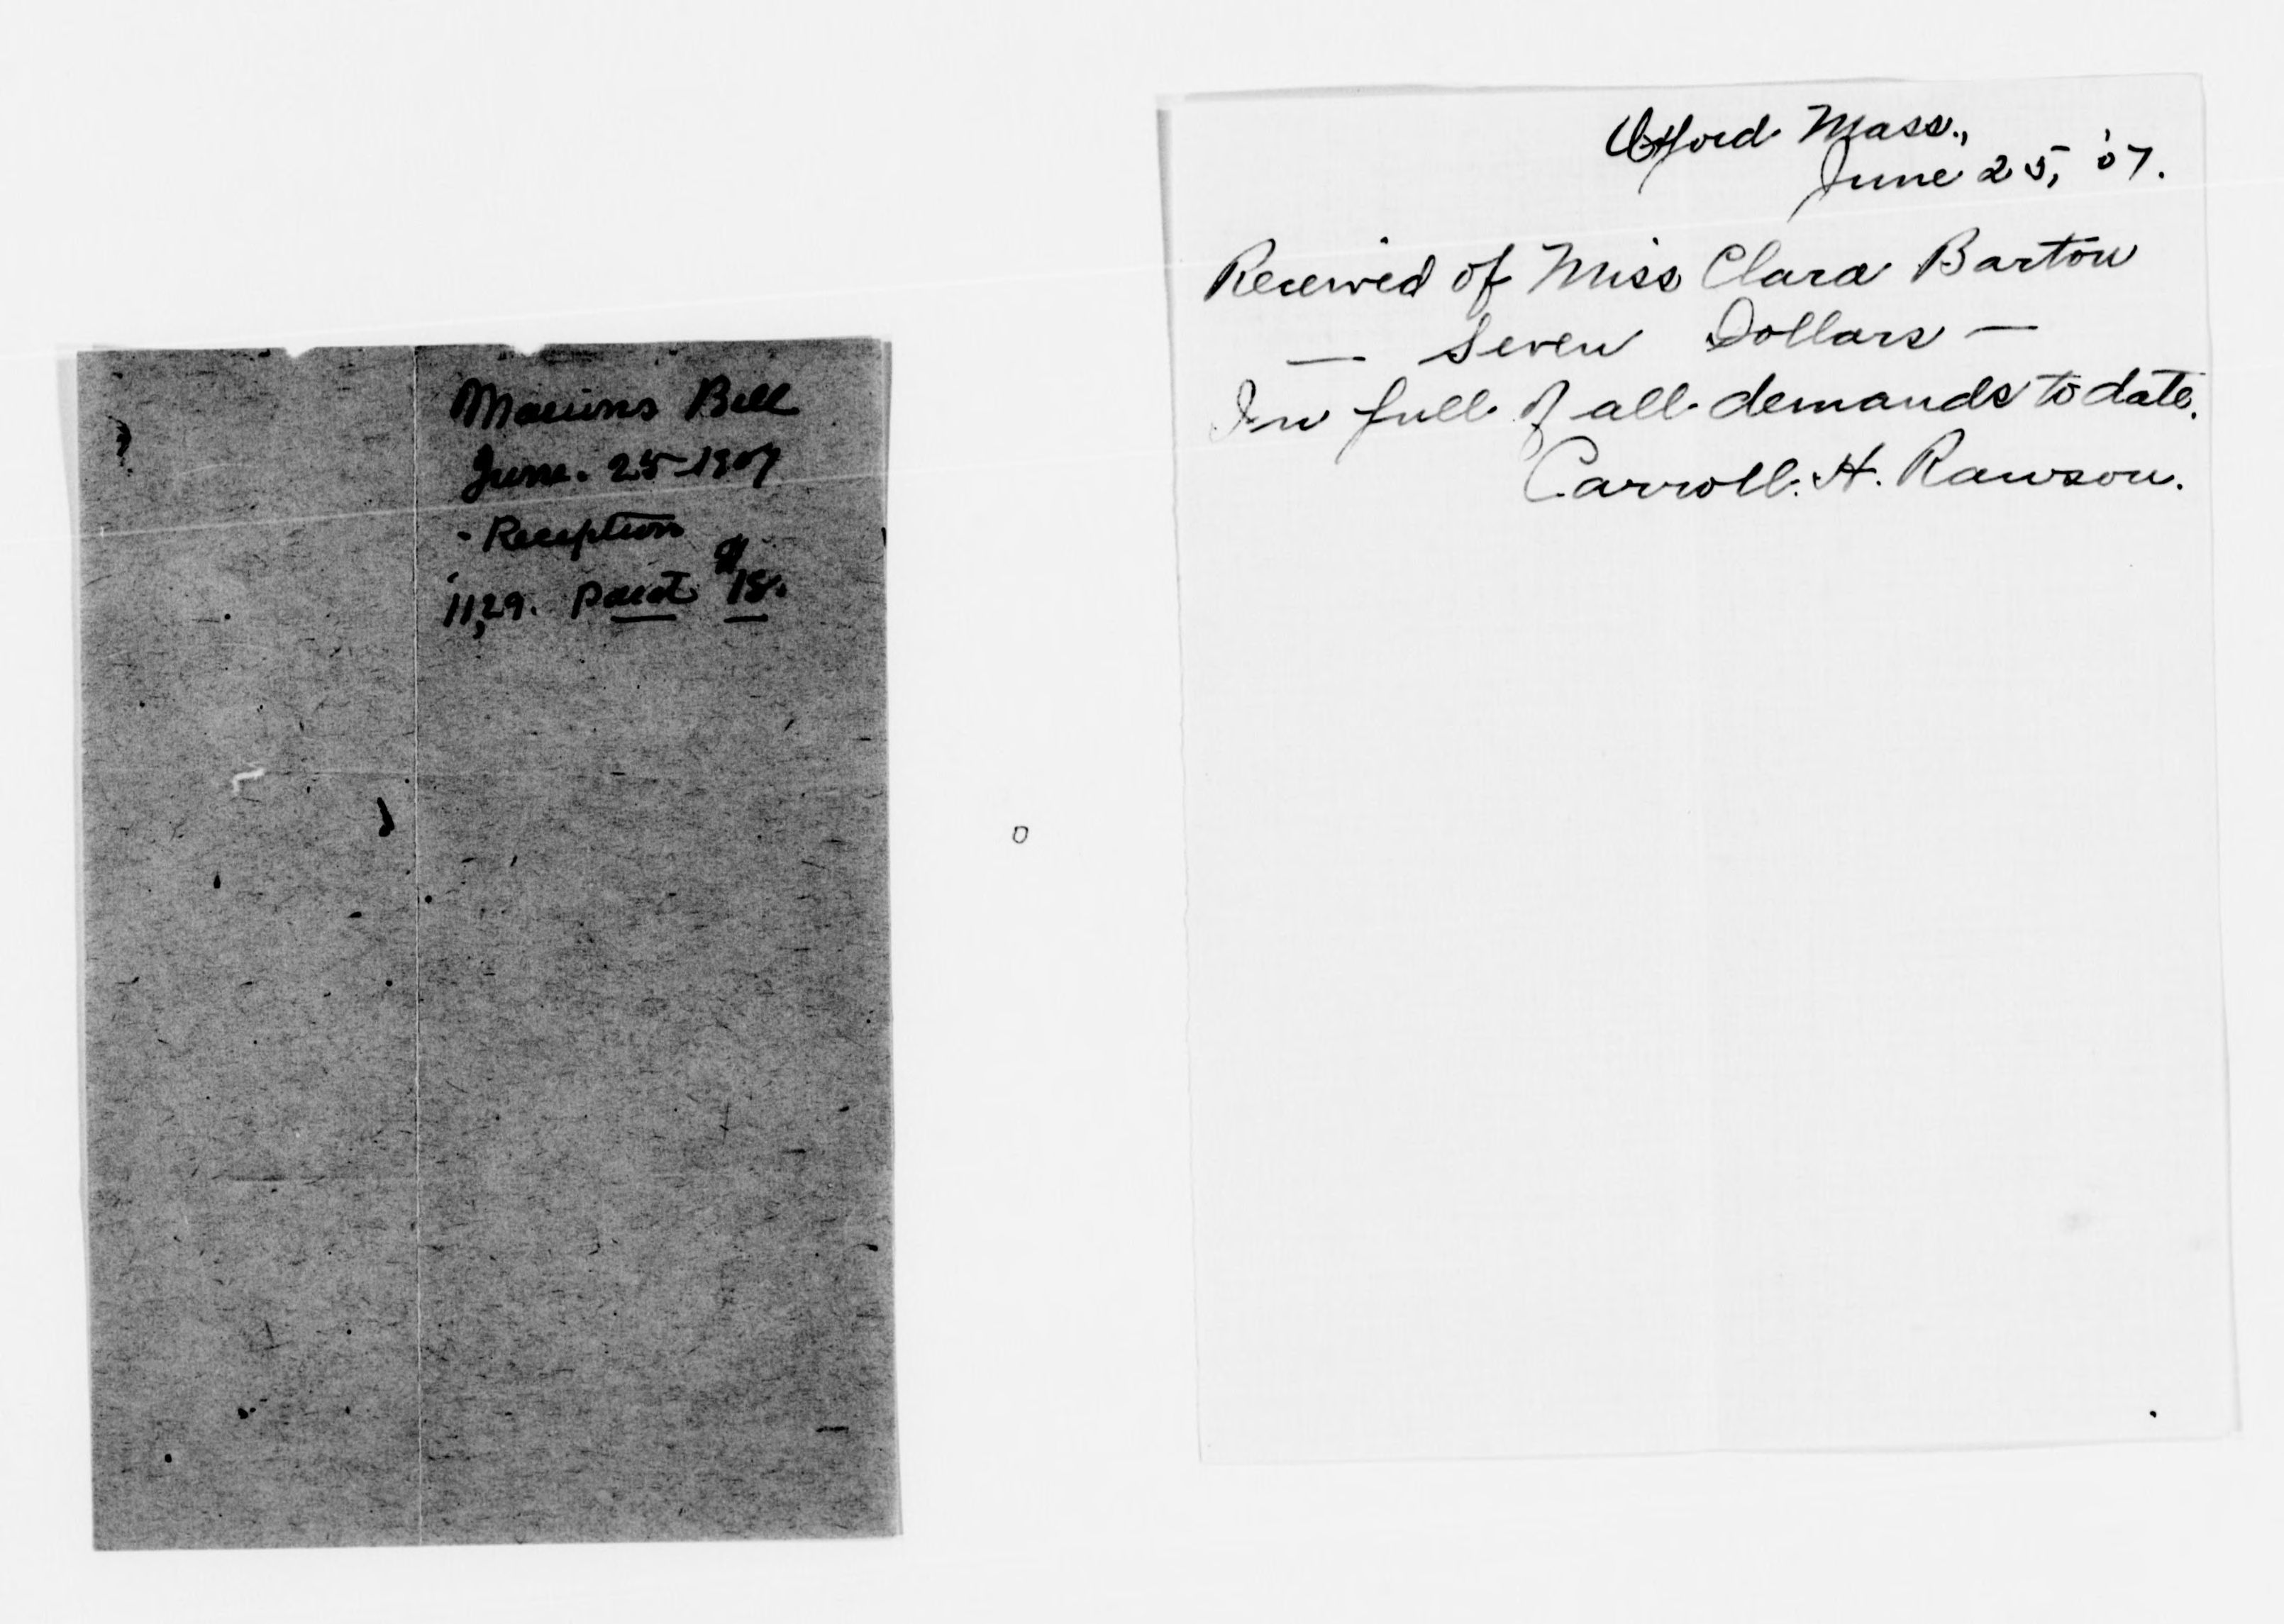 Bill
June. 25-1907
- Reception
11,29. paid $18.
Oxford Mass.,
June 25, '07.
Received of Miss Clara Barton
— Seven Dollars —
In full of all demands to date.
Carroll. H. Rawson.